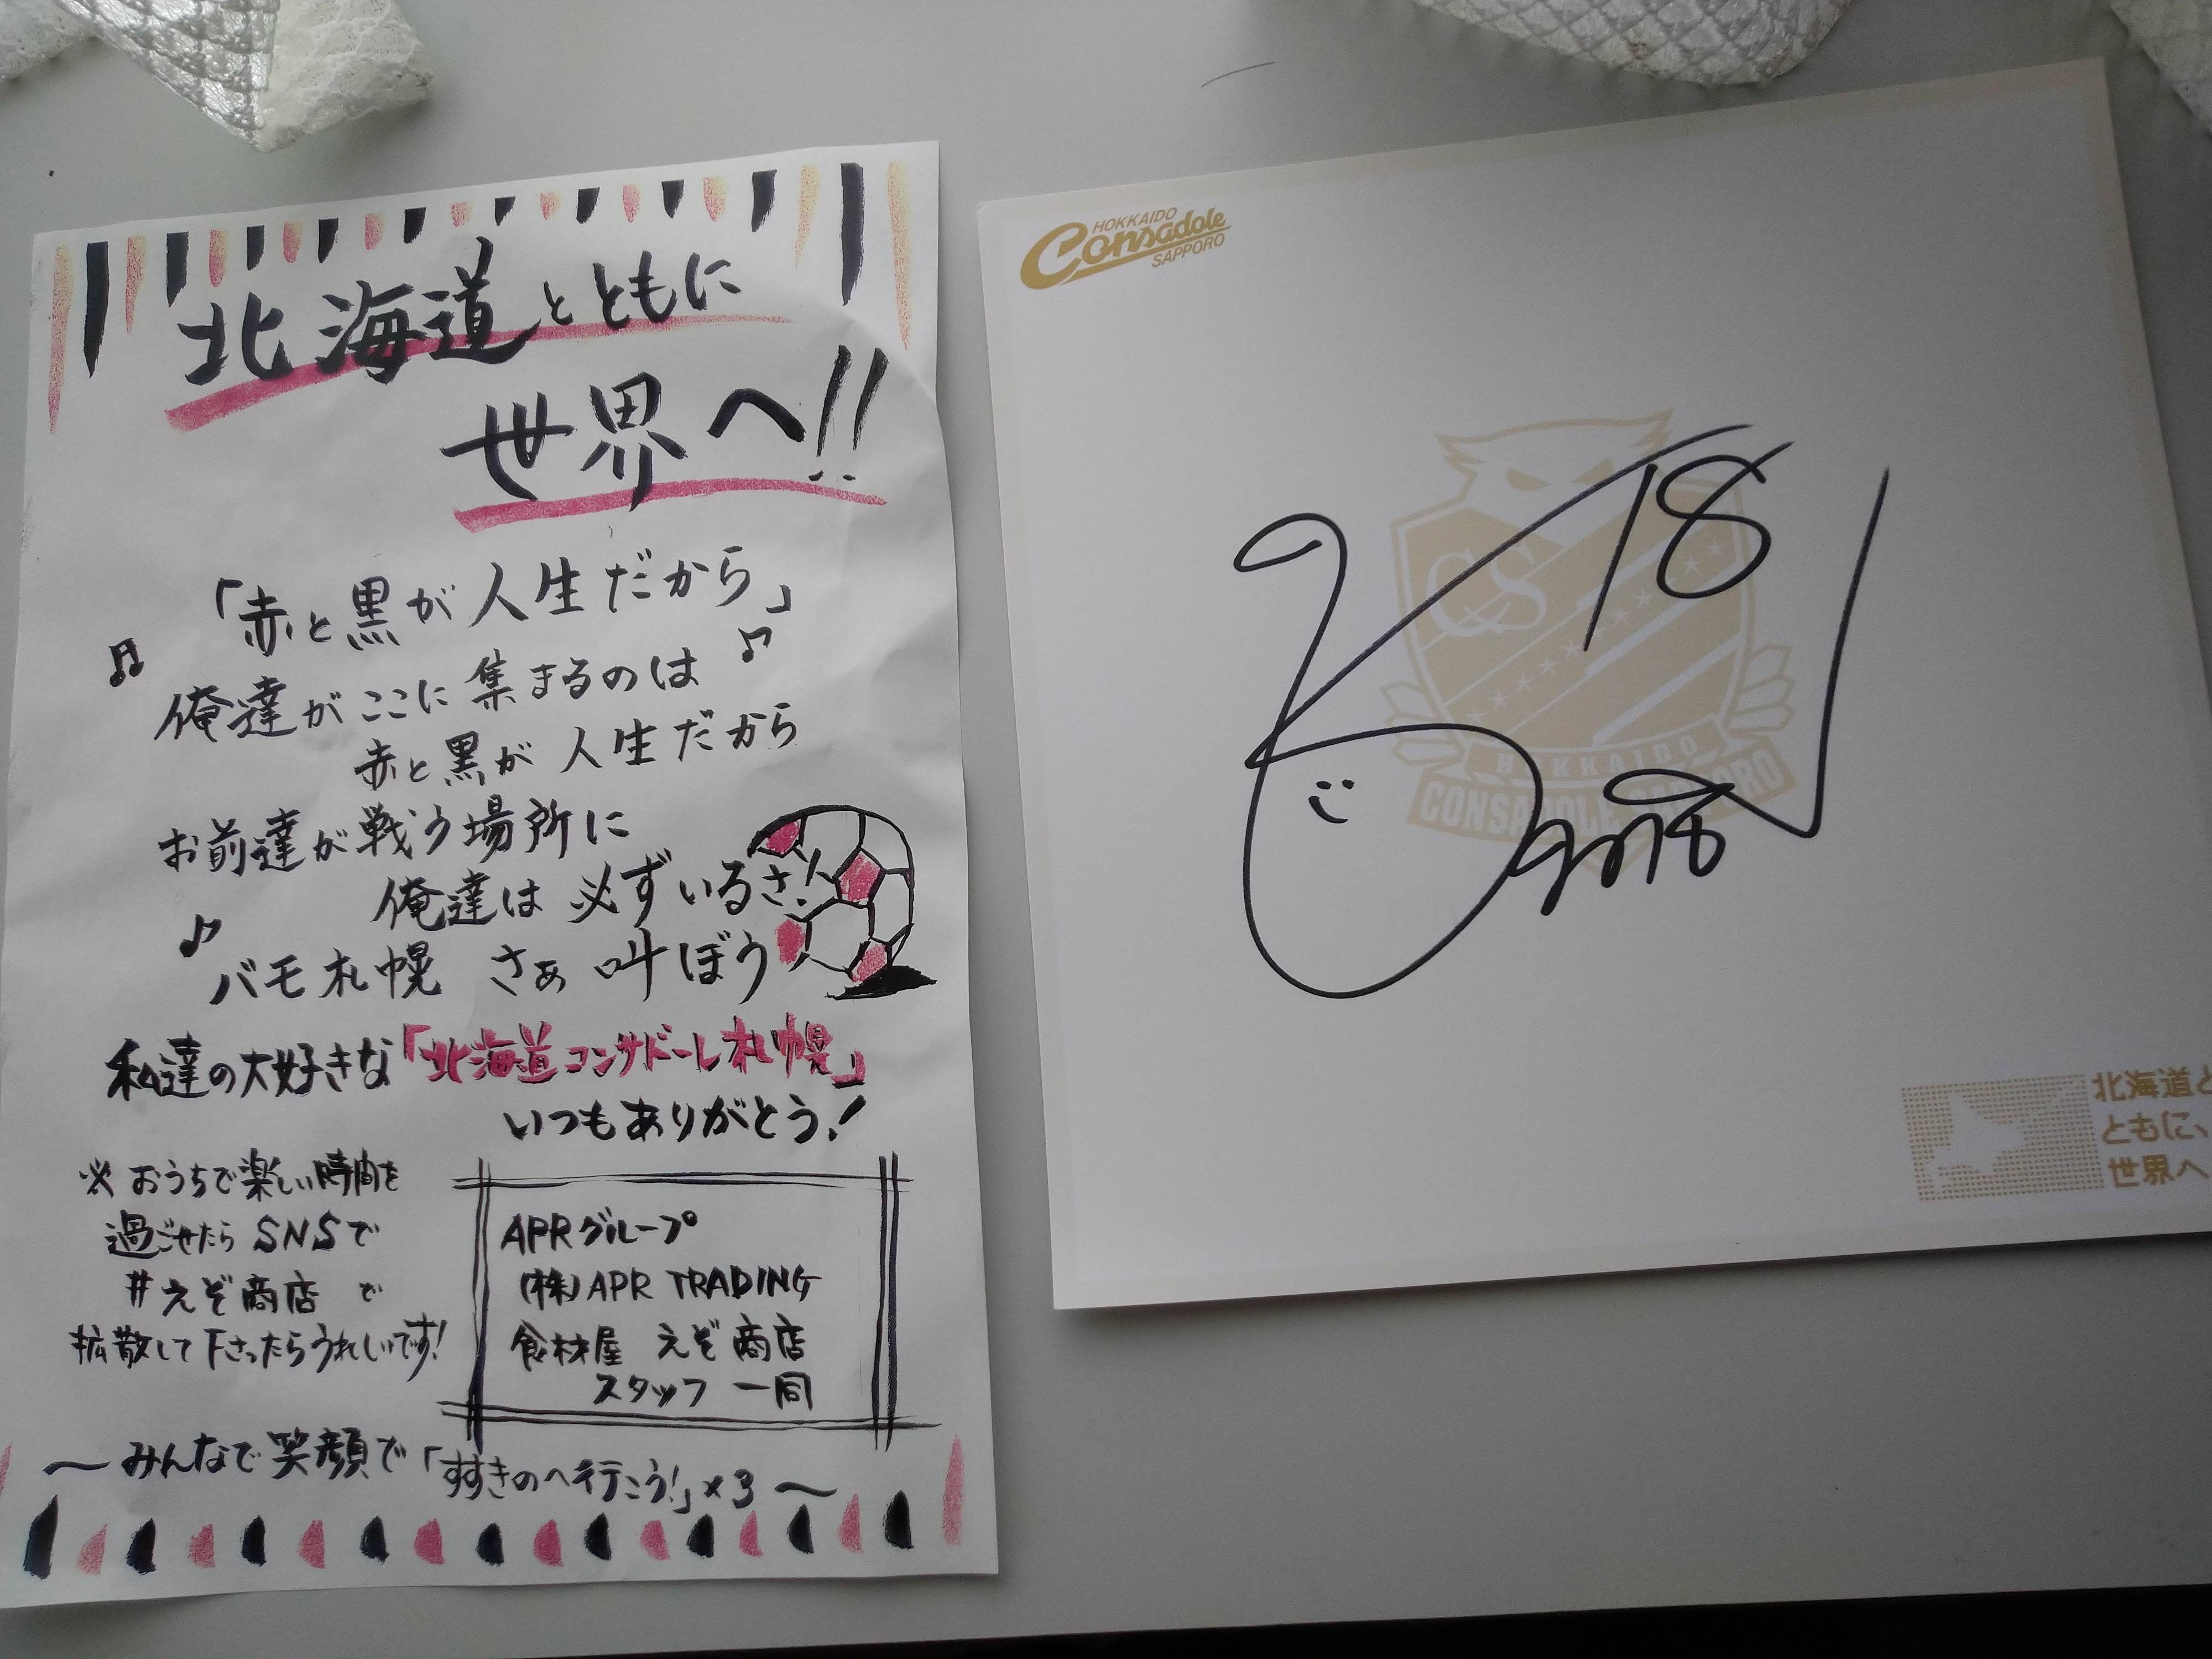 北海道とともに
世界へ!!
「赤と黒が人生だから」
俺達がここに集まるのは
赤と黒が人生だから
お前達が戦う場所に
俺達は必ずいるさ!
バモ札幌 さぁ叫ぼう
私達の大好きな「北海道コンサドーレ札幌」
いつもありがとう!
※おうちで楽しい時間を
過ごせたらSNSで
#えぞ商店 で
拡散して下さったらうれしいです!
APRグループ
(株)APR TRADING
食材屋 えぞ商店
スタッフ 一同
〜みんなで笑顔で「すすきのへ行こう!」×3〜
HOKKAIDO
Consadole
SAPPORO
18
CS
HOKKAIDO
CONSADOLE SAPPORO
北海道と
ともに、
世界へ